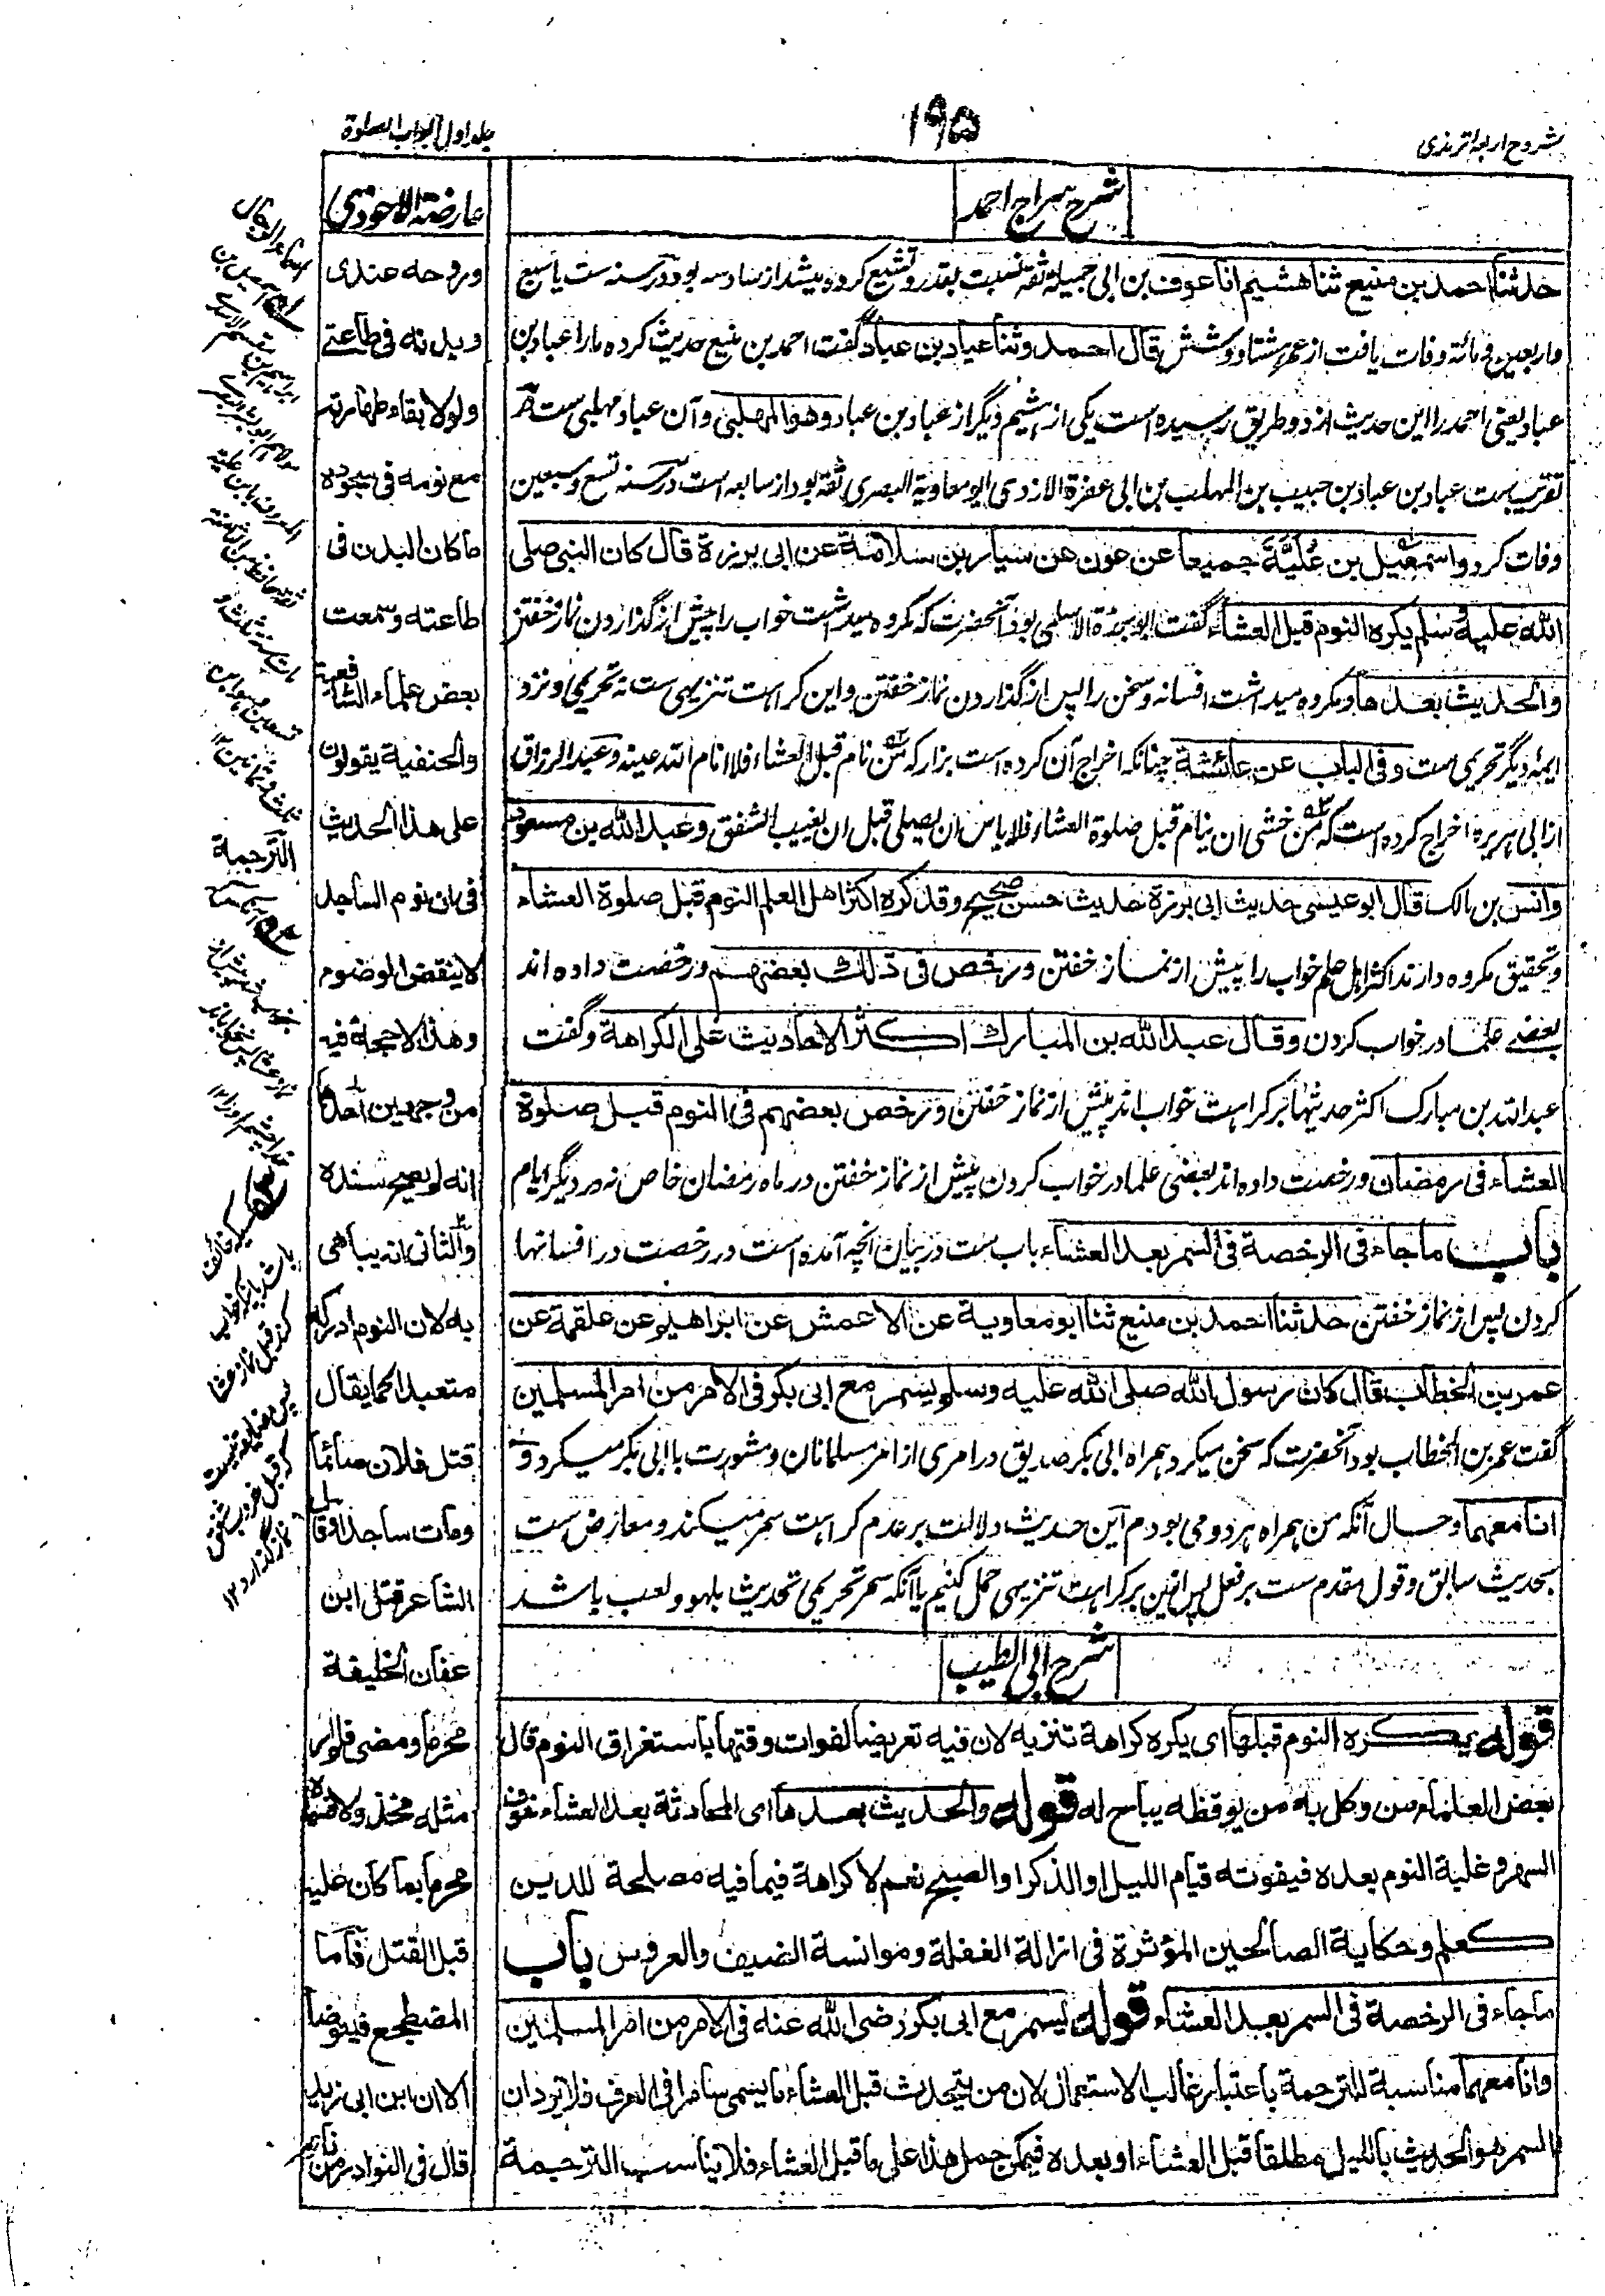 شروح اربعہ ترمذی
۱۹۵
جلد اول ابواب الصلوة
شرح سراج احمد
حدثنا احمد بن منیع ثنا هشیم انا عوف بن ابی جمیلة ثقه نسبت بقدر و تشیع کرده بیشد از سادسه بود در سنه ست یا سبع
و اربعین و مائة وفات یافت از عمر هشتاد و شش قال احمد وثنا عباد بن عباد گفت احمد بن منیع حدیث کرده مارا عباد بن
عباد یعنی احمد را این حدیث از دو طریق رسیده است یکی از هشیم دیگر از عباد بن عباد وهو المهلبی و آن عباد مهلبی است در
تقریب ست عباد بن عباد بن حبیب بن المهلب بن ابی صفرة الازدی ابو معاویة البصری ثقه بود از سابعه است در سنه تسع و سبعین
وفات کرد واسمعیل بن عُلَیَّةَ جمیعا عن عون عن سیار بن سلامة عن ابی برزة قال کان النبی صلی
الله علیه وسلم یکره النوم قبل العشاء گفت ابو برزة الاسلمی بود آنحضرت که مکروه میداشت خواب را پیش از گذاردن نماز خفتن
والحدیث بعدها و مکروه میداشت افسانه و سخن را پس از گذاردن نماز خفتن و این کراهت تنزیهی ست نه تحریمی و نزد
ایمه دیگر تحریمی ست وفی الباب عن عائشة چنانکه اخراج آن کرده است بزار که من نام قبل العشاء فلا انام الله عینه و عبد الرزاق
از ابی هریره اخراج کرده است که من خشی ان ینام قبل صلوة العشاء فلا باس ان یصلی قبل ان یغیب الشفق وعبد الله بن مسعود
وانس بن مالک قال ابو عیسی حدیث ابی برزة حدیث حسن صحیح وقد کره اکثر اهل العلم النوم قبل صلوة العشاء
و تحقیق مکروه دارند اکثر اهل علم خواب را پیش از نماز خفتن ورخص فی ذلک بعضهم و رخصت داده اند
بعضے علما در خواب کردن وقال عبد الله بن المبارک اکثر الاحادیث علی الکراهة و گفت
عبد الله بن مبارک اکثر حدیثها بر کراهت خواب اند پیش از نماز خفتن ورخص بعضهم فی النوم قبل صلوة
العشاء فی رمضان و رخصت داده اند بعضی علما در خواب کردن پیش از نماز خفتن در ماه رمضان خاص نه در دیگر ایام
باب ما جاء فی الرخصة فی السمر بعد العشاء باب ست در بیان انچه آمده است در رخصت در افسانها
کردن پس از نماز خفتن حدثنا احمد بن منیع ثنا ابو معاویة عن الاعمش عن ابراهیم عن علقمة عن
عمر بن الخطاب قال کان رسول الله صلی الله علیه وسلم یسمر مع ابی بکر فی الامر من امر المسلمین
گفت عمر بن الخطاب بود آنحضرت که سخن میکرد همراه ابی بکر صدیق در امری از امر مسلمانان و مشورت با ابی بکر میکرد و
انا معهما و حال آنکه من همراه هر دو می بودم این حدیث دلالت بر عدم کراهت سمر میکند و معارض ست
بحدیث سابق و قول مقدم ست بر فعل پس اتین بر کراهت تنزیهی حمل کنیم یا آنکه سمر تحریمی تحدیث بلهو و لعب باشد
شرح ابی الطیب
قوله یکره النوم قبلها ای یکره کراهة تنزیه لان فیه تعریضا لفوات وقتها باستغراق النوم قال
بعض العلماء من وکل به من یوقظه یباح له قوله والحدیث بعدها ای المحادثة بعد العشاء خوف
السهر و غلبة النوم بعده فیفوته قیام اللیل او الذکر او الصبح نعم لا کراهة فیما فیه مصلحة للدین
کعلم وحکایة الصالحین المؤثرة فی ازالة الغفلة وموانسة الضیف والعروس باب
ما جاء فی الرخصة فی السمر بعد العشاء قوله لیسمر مع ابی بکر رضی الله عنه فی الامر من امر المسلمین
وانا معهما مناسبة للترجمة باعتبار غالب الاستعمال لان من یتحدث قبل العشاء ما یسمی سامرا فی العرف فلا یرد ان
السمر هو الحدیث باللیل مطلقا قبل العشاء او بعده فیمکن حمل هذا علی ما قبل العشاء فلا یناسب الترجمة
عارضة الاحوذی
وروحه عندی
وبدنه فی طاعتی
ولولا بقاء طهارته
مع نومه فی سجوده
ما کان البدن فی
طاعته وسمعت
بعض علماء الشافعیة
والحنفیة یقولون
علی هذا الحدیث
فی ان نوم الساجد
لا ینقض الوضوء
وهذا لا حجة فیه
من وجهین احدهما
انه لم یصح سنده
والثانی انه یباهی
به لان النوم ادرکه
متعبدا کما یقال
قتل فلان صائما
ومات ساجدا وقال
الشاعر قتل ابن
عفان الخلیفة
محرما ومضی فلم ار
مثله مخذولا
محرما بما کان علیه
قبل القتل فاما
المضطجع فیتوضأ
الا ان ابن ابی زید
قال فی النوادر من نام
الترجمة
باشد یا اینکه خواب
کند قبل نماز عشا
پس مضایقه نیست
که قبل غروب شفق
نماز گذارد ۱۲